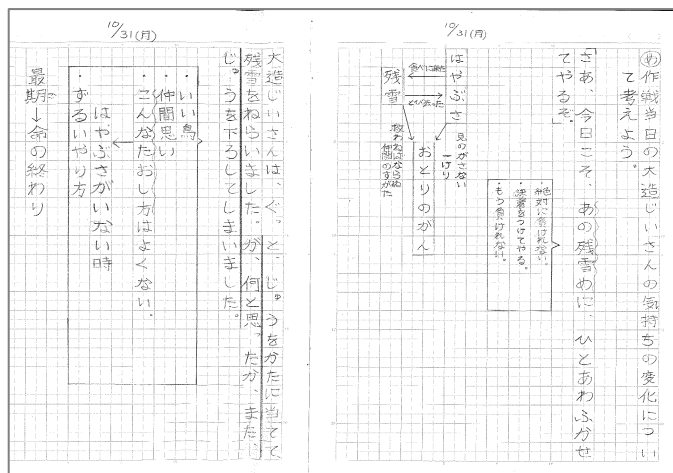 10/31(月)
め 作戦当日の大造じいさんの気持ちの変化につい
て考えよう。
「さあ、今日こそ、あの残雪めに、ひとあわふかせ
てやるぞ。」
・絶対に負けれない。
・決着をつけてやる。
・もう負けれない。
はやぶさ
見のがさない
一けり
残雪
おとりのがん
救わねばならぬ
仲間のすがた
10/31(月)
大造じいさんは、ぐっと、じゅうをかたに当てて
残雪をねらいました。が、何と思ったか、また、
じゅうを下ろしてしまいました。
・いい鳥
・仲間思い
・こんなたおし方はよくない。
はやぶさがいない時
・ずるいやり方
最期→命の終わり